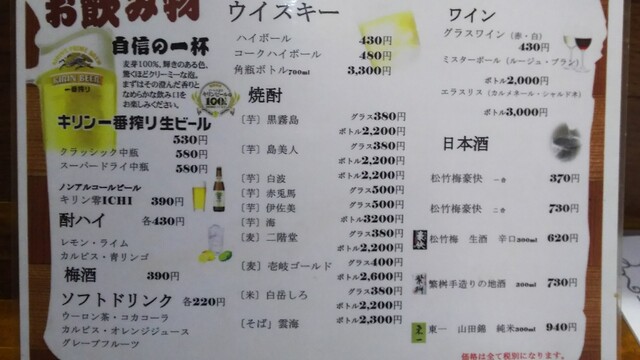 お飲み物
自信の一杯
麦芽100%、輝きのある色、
驚くほどクリーミーな泡。
まずはその澄んだ香りと
なめらかな飲み口を
お楽しみください。
KIRIN BEER
一番搾り
100%
キリン一番搾り生ビール
530円
クラッシック中瓶 580円
スーパードライ中瓶 580円
ノンアルコールビール
キリン零ICHI 390円
酎ハイ 各430円
レモン・ライム
カルピス・青リンゴ
梅酒 390円
ソフトドリンク 各220円
ウーロン茶・コカコーラ
カルピス・オレンジジュース
グレープフルーツ
ウイスキー
ハイボール 430円
コークハイボール 480円
角瓶ボトル700ml 3,300円
焼酎
〔芋〕黒霧島 グラス380円
ボトル2,200円
〔芋〕島美人 グラス380円
ボトル2,200円
ボトル2,200円
〔芋〕白波 グラス500円
〔芋〕赤兎馬 グラス500円
〔芋〕伊佐美 ボトル3200円
〔芋〕海 グラス380円
〔麦〕二階堂 ボトル2,200円
グラス400円
〔麦〕壱岐ゴールド ボトル2,600円
グラス380円
〔米〕白岳しろ ボトル2,200円
〔そば〕雲海 ボトル2,300円
ワイン
グラスワイン（赤・白）
430円
ミスターボール（ルージュ・ブラン）
ボトル2,000円
エラスリス（カルメネール・シャルドネ）
ボトル3,000円
日本酒
松竹梅豪快 一合 370円
松竹梅豪快 二合 730円
松竹梅 生酒 辛口300ml 620円
繁桝手造りの地酒 300ml 730円
東一 山田錦 純米300ml 940円
価格は全て税別になります。